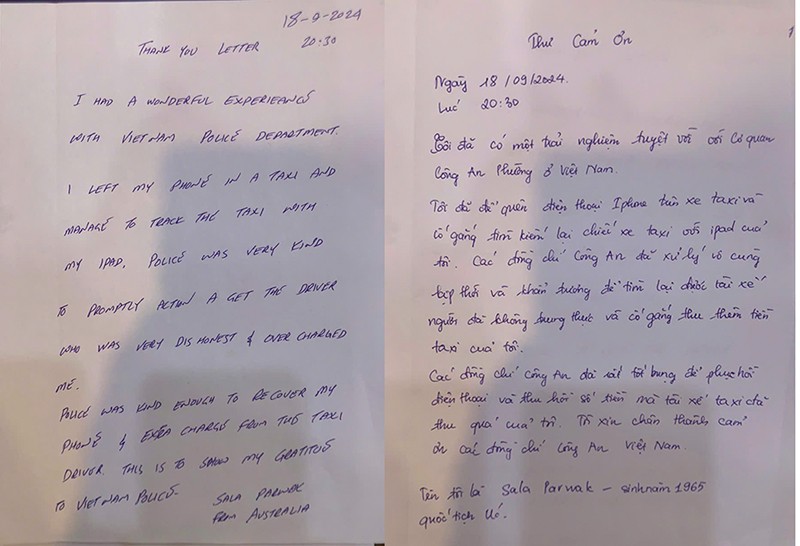 18-9-2024
THANK YOU LETTER
20:30
I HAD A WONDERFUL EXPERIEANCE
WITH VIETNAM POLICE DEPARTMENT.
I LEFT MY PHONE IN A TAXI AND
MANAGE TO TRACK THE TAXI WITH
MY IPAD, POLICE WAS VERY KIND
TO PROMPTLY ACTION & GET THE DRIVER
WHO WAS VERY DISHONEST & OVER CHARGED
ME.
POLICE WAS KIND ENOUGH TO RECOVER MY
PHONE & EXTRA CHARGE FROM THE TAXI
DRIVER. THIS IS TO SHOW MY GRATITUE
TO VIETNAM POLICE.
SALA PARWAK
FROM AUSTRALIA
1
Thư Cám Ơn
Ngày 18/09/2024.
Lúc 20:30
Tôi đã có một trải nghiệm tuyệt vời với Cơ quan
Công An Phường ở Việt Nam.
Tôi đã để quên điện thoại Iphone trên xe taxi và
cố gắng tìm kiếm lại chiếc xe taxi với ipad của
tôi. Các đồng chí Công An đã xử lý vô cùng
kịp thời và khẩn trương để tìm lại được tài xế
người đã không trung thực và cố gắng thu thêm tiền
taxi của tôi.
Các đồng chí Công An đã rất tốt bụng để phục hồi
điện thoại và thu hồi số tiền mà tài xế taxi đã
thu quá của tôi. Tôi xin chân thành cám
ơn các đồng chí Công An Việt Nam.
Tên tôi là Sala Parwak – sinh năm 1965
quốc tịch Úc.